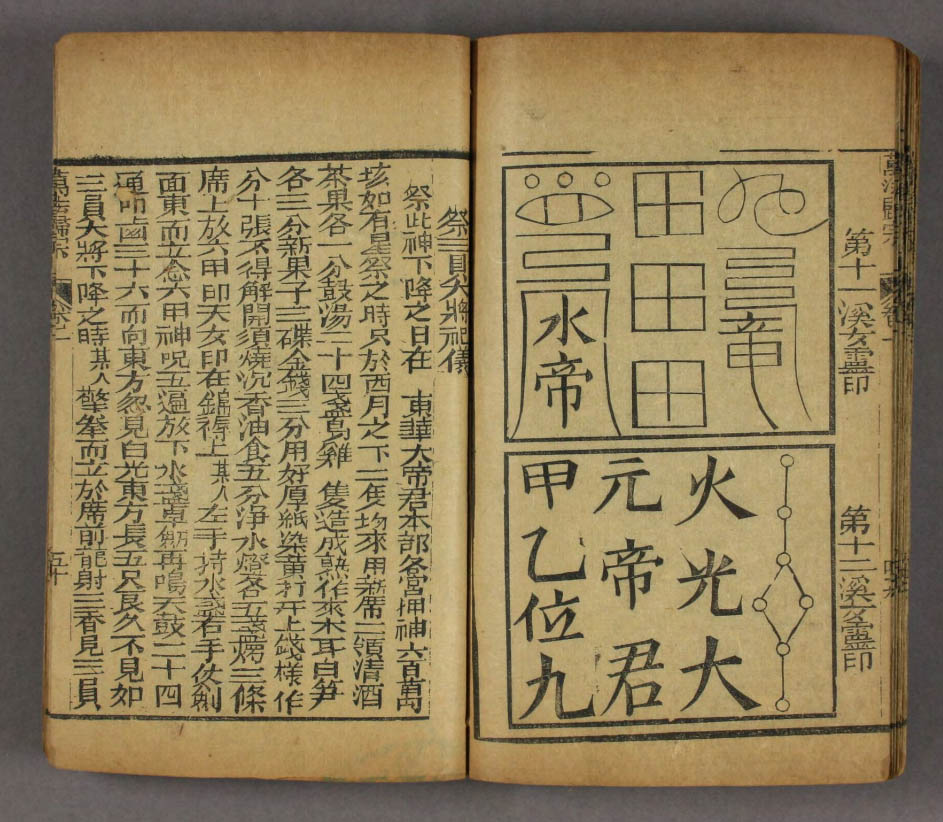 萬法歸宗
第十一溪女靈印
第十二溪女靈印
水帝
田田田
火光大
元帝君
甲乙位九
祭三員大將祀儀
祭此神下降之日在 東華大帝君本部各宮押神六百萬
垓如有星祭之時只於酉月之下二隻均來用新席二領清酒
茶果各一分鼓湯二十四盞烏雞 隻造成熟作來木耳白笋
各三分新果子三碟金錢三分用好厚紙染黃打開上錢樣作
分十張不得解開須燒沉香油食五分淨水燈各五盞燭三條
席上放六甲印天女印在鍋上某人左手持水盞右手仗劍
面東而立念六甲神呪五遍放下水盞再鳴天鼓二十四
通叩齒三十六而向東方忽見白光東方長五尺良久不見如
三員大將下降之時某人擎拳而立於席前龍射三香見三員
萬法歸宗
五十